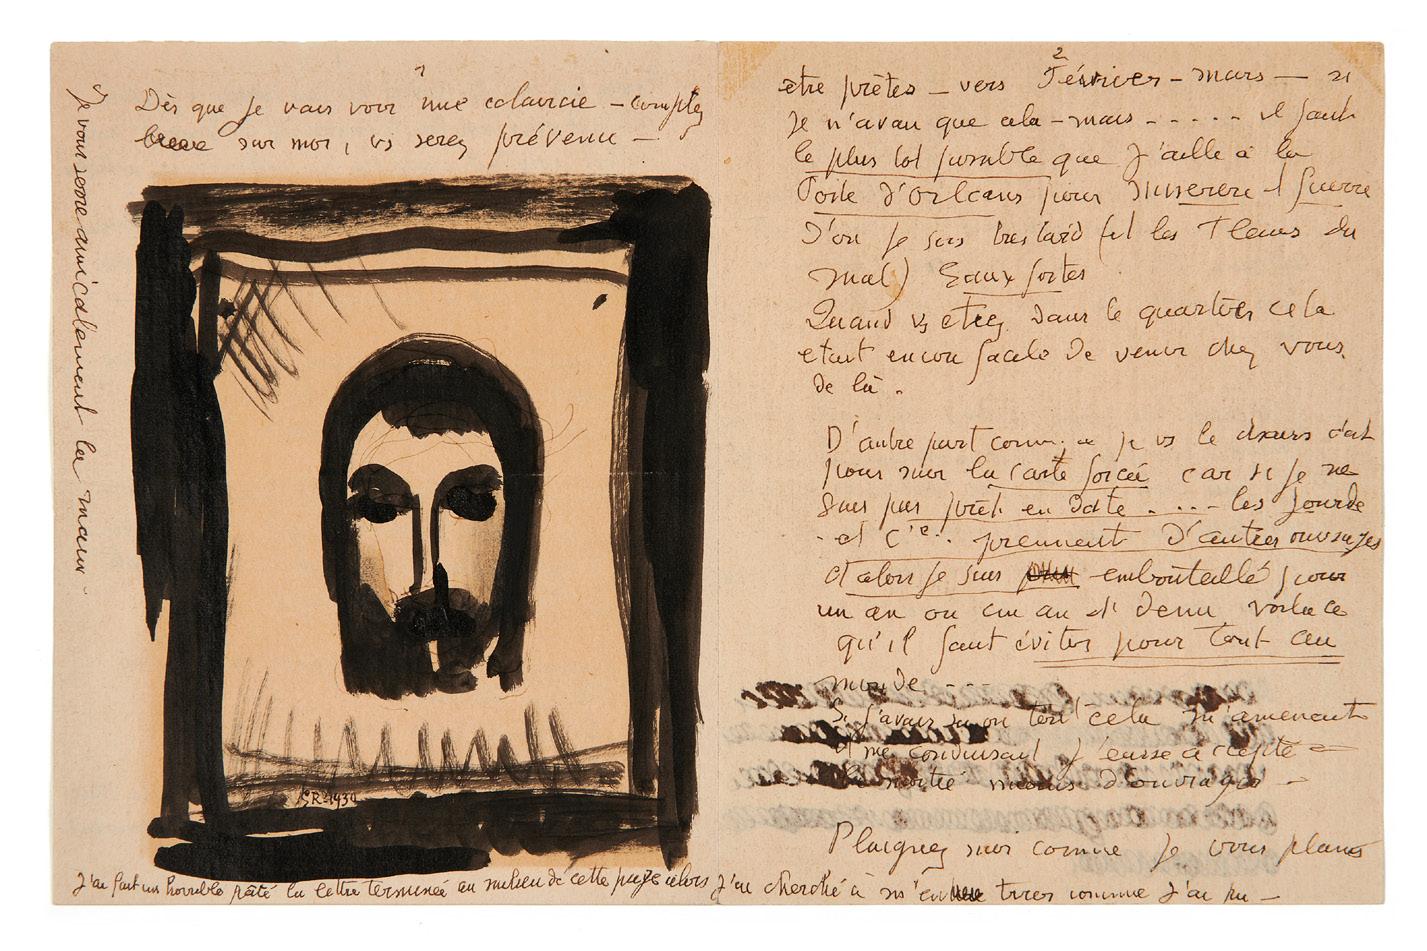 1
Dès que je vais voir une eclaircie – comptez
sur moi, vs serez prévenu –
je vous serre amicalement la main –
GR 1930
J'ai fait un horrible pâté la lettre terminée au milieu de cette page alors j'ai cherché à m'en tirer comme j'ai pu –
2
etre prêtes – vers Février – mars – si
je n'avais que cela – mais - - - - - il faut
le plus tot possible que j'aille à la
Porte d'Orleans pour Miserere et Guerre
D'ou je suis tres tard (et les Fleurs du
mal) Eaux fortes
Quand vs etiez dans le quartier cela
etait encore facile de venir chez vous
de là .
D'autre part comme je vs le disais c'est
pour moi la carte forcée car si je ne
suis pas prêt en date . . . - les Jourde
- et Cie. . prennent d'autres ouvrages
et alors je suis embouteillé pour
un an ou un an et demi, voila ce
qu'il faut éviter pour tout au
monde - - -
Si j'avais su ou tout cela m'amenait
et me conduisait j'eusse accepté
moitié moins d'ouvrages –
Plaignez moi comme je vous plains